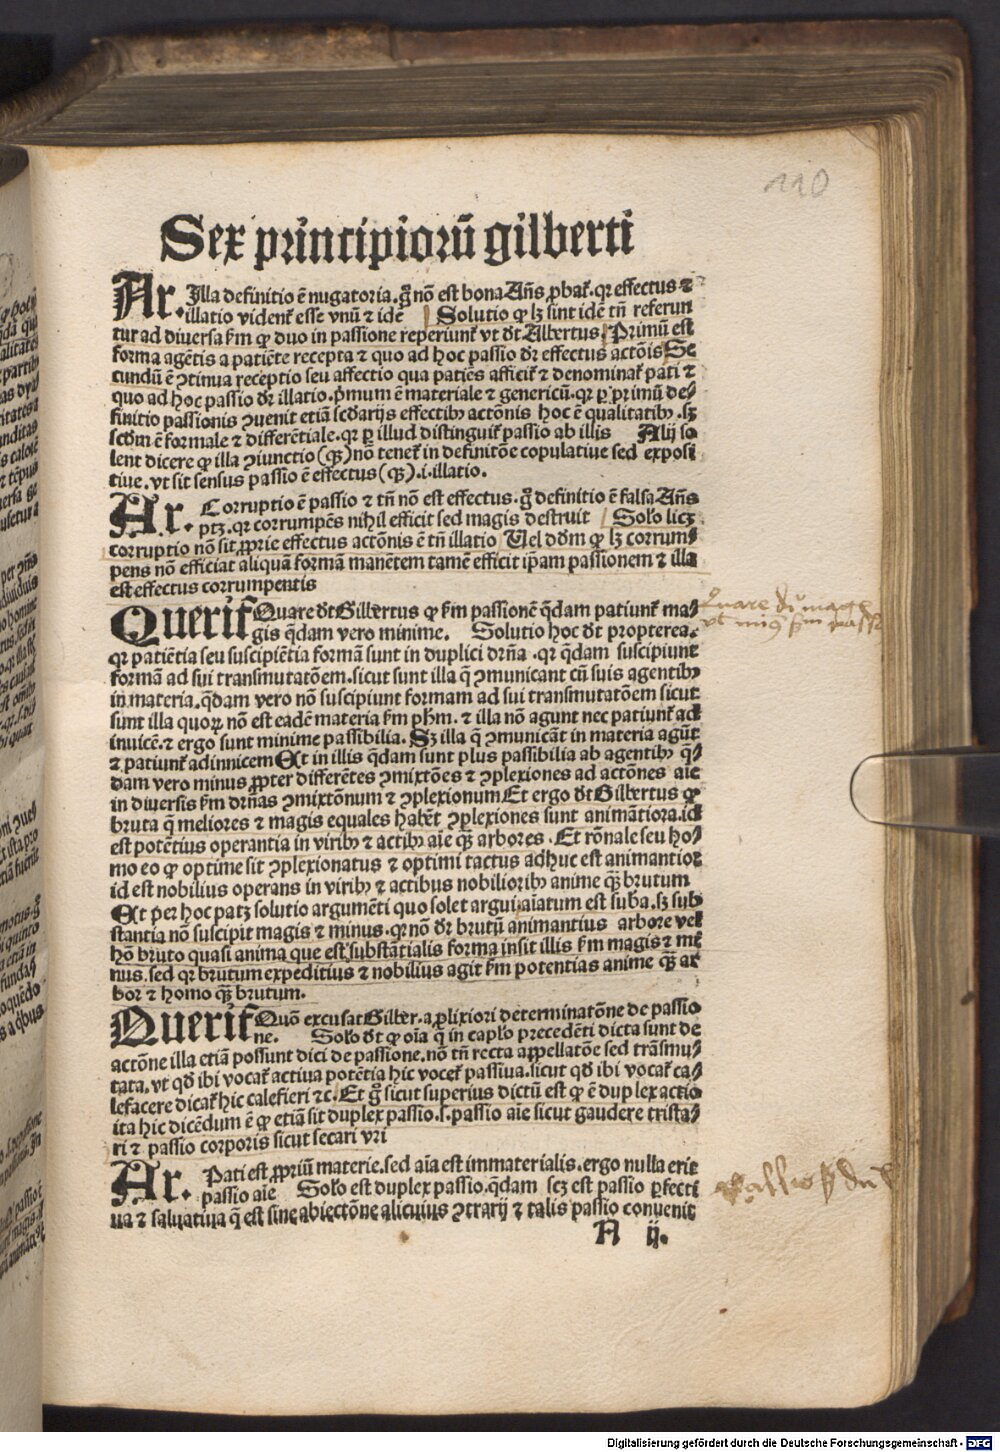 110
Sex principiorū gilberti
Ar. Illa definitio ē nugatoria. gͦ nō est bona Añs ꝓbaꝶ. qꝛ effectus ⁊
illatio vident̄ esse vnū ⁊ idē Solutio ꝙ lꝫ sint idē tñ referun
tur ad diuersa ẜm ꝙ duo in passione reperiunt̄ vt dt̄ Albertus Primū est
forma agētis a patiēte recepta ⁊ quo ad hoc passio dr̄ effectus actōis Se
cundū ē ꝯtinua receptio seu affectio qua patiēs afficit̄ ⁊ denominat̄ pati ⁊
quo ad hoc passio dr̄ illatio. pͥmum ē materiale ⁊ genericū. qꝛ ꝑ primū de⸗
finitio passionis ꝯuenit etiā scd̄arijs effectibꝰ actōnis hoc ē qualitatibꝰ. sꝫ
scd̄m ē formale ⁊ differētiale. qꝛ ꝑ illud distinguit̄ passio ab illis Alij so
lent dicere ꝙ illa ꝯiunctio (qꝫ) nō tenet̄ in definitōe copulatiue sed exposi
tiue. vt sit sensus passio ē effectus (qꝫ) .i. illatio.
Ar. Corruptio ē passio ⁊ tñ nō est effectus. gͦ definitio ē falsa Añs
ptꝫ. qꝛ corrumpēs nihil efficit sed magis destruit Solo licꝫ
corruptio nō sit ꝓprie effectus actōnis ē tñ illatio Uel dd̄m ꝙ lꝫ corrum⸗
pens nō efficiat aliquā formā manētem tamē efficit ip̄am passionem ⁊ illa
est effectus corrumpentis
Querit̄ Quare dt̄ Gilbertus ꝙ ẜm passionē qd̄am patiunt̄ ma⸗
gis qd̄am vero minime. Solutio hoc dt̄ propterea.
qꝛ patiētia seu suscipiētia formā sunt in duplici drn̄a. qꝛ qd̄am suscipiunt
formā ad sui transmutatōem. sicut sunt illa q̄ ꝯmunicant cū suis agentibꝰ
in materia. qd̄am vero nō suscipiunt formam ad sui transmutatōem sicut
sunt illa quoꝝ nō est eadē materia ẜm ph̄m. ⁊ illa nō agunt nec patiunt̄ ad
inuicē. ⁊ ergo sunt minime passibilia. Sꝫ illa q̄ ꝯmunicāt in materia agūt
⁊ patiunt̄ adinnicem Et in illis qd̄am sunt plus passibilia ab agentibꝰ q̄⸗
dam vero minus ꝓpter differētes ꝯmixtōes ⁊ ꝯplexiones ad actōnes aīe
in diuersis ẜm drn̄as ꝯmixtōnum ⁊ ꝯplexionum Et ergo dt̄ Gilbertus ꝙ
bruta q̄ meliores ⁊ magis equales habēt ꝯplexiones sunt animātiora. id
est potētius operantia in viribꝰ ⁊ actibꝰ aīe qꝫ arbores. Et rōnale seu ho⸗
mo eo ꝙ optime sit ꝯplexionatus ⁊ optimi tactus adhuc est animantior
id est nobilius operans in viribꝰ ⁊ actibus nobilioribꝰ anime qꝫ brutum
Et per hoc patꝫ solutio argumēti quo solet argui aīatum est sub̄a. sꝫ sub
stantia nō suscipit magis ⁊ minus. qꝛ nō dr̄ brutū animantius arbore vel
hō bruto quasi anima que est substātialis forma insit illis ẜm magis ⁊ mi
nus. sed qꝛ brutum expeditius ⁊ nobilius agit ẜm potentias anime qꝫ ar
bor ⁊ homo qꝫ brutum.
Querit̄ Quō excusat Gilber. a ꝓlixiori determinatōne de passio
ne. Solo dt̄ ꝙ oīa q̄ in caplo precedēti dicta sunt de
actōne illa etiā possunt dici de passione. nō tñ recta appellatōe sed trāsmu⸗
tata. vt qd̄ ibi vocat̄ actiua potētia hic vocet̄ passiua. sicut qd̄ ibi vocat̄ ca⸗
lefacere dicat̄ hic calefieri ⁊c. Et gͦ sicut superius dictū est ꝙ ē duplex actio
ita hic dicēdum ē ꝙ etiā sit duplex passio. s. passio aīe sicut gaudere trista⸗
ri ⁊ passio corporis sicut secari vri
Ar. Pati est ꝓpriū materie. sed aīa est immaterialis. ergo nulla erit
passio aīe Solo est duplex passio. qd̄am scꝫ est passio ꝑfecti
ua ⁊ saluatiua q̄ est sine abiectōne alicuius ꝯtrarij ⁊ talis passio conuenit
A ij.
Digitalisierung gefördert durch die Deutsche Forschungsgemeinschaft - DFG